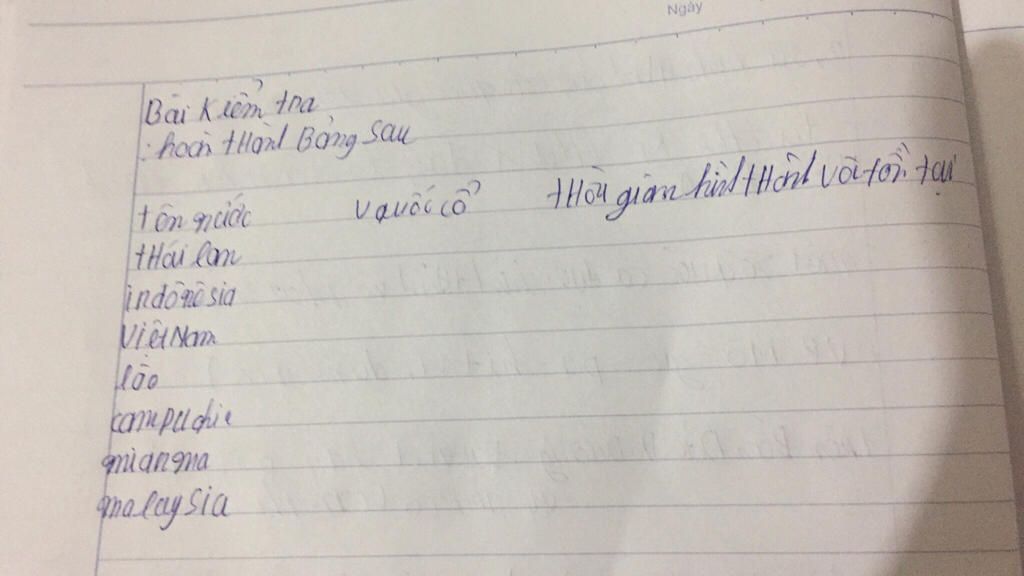 Ngày
Bài Kiểm tra
: hoàn tHành Bảng sau
tên nước vquốc cổ tHời gian hình tHành và tồn tại
tHái lan
inđônêsia
Việt Nam
lào
campuchia
mianma
malaysia